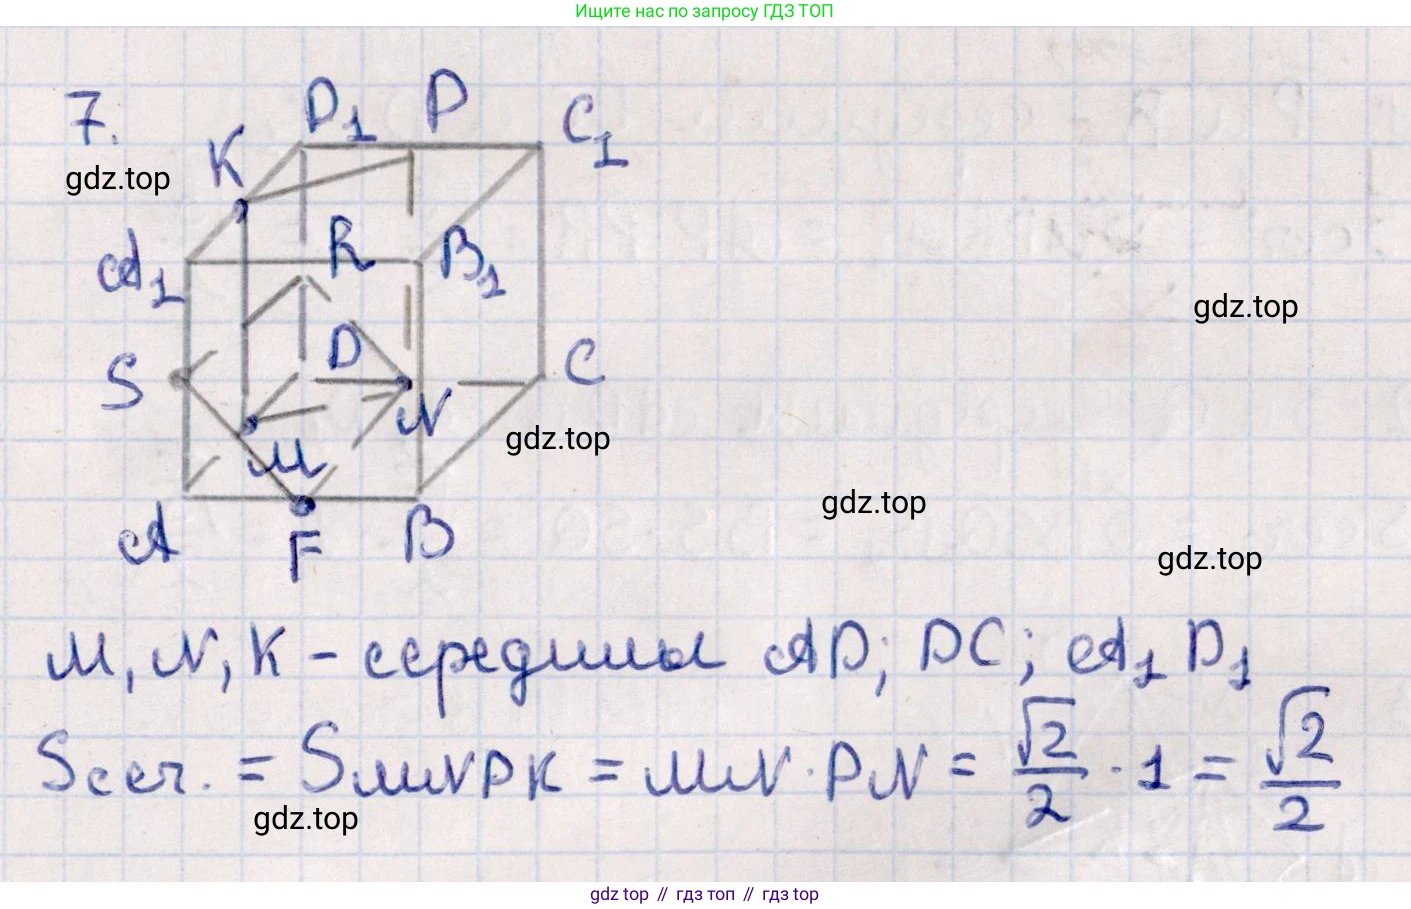 Ищите нас по запросу ГДЗ ТОП
7.
D₁ P C₁
K
gdz.top
A₁ R B₁
gdz.top
S D C
N
gdz.top
M
gdz.top
A F B
gdz.top
M, N, K – середины AD; DC; A₁D₁
Sсеч. = SMNPK = MN · PN = √2/2 · 1 = √2/2
gdz.top
gdz top // гдз топ // гдз top